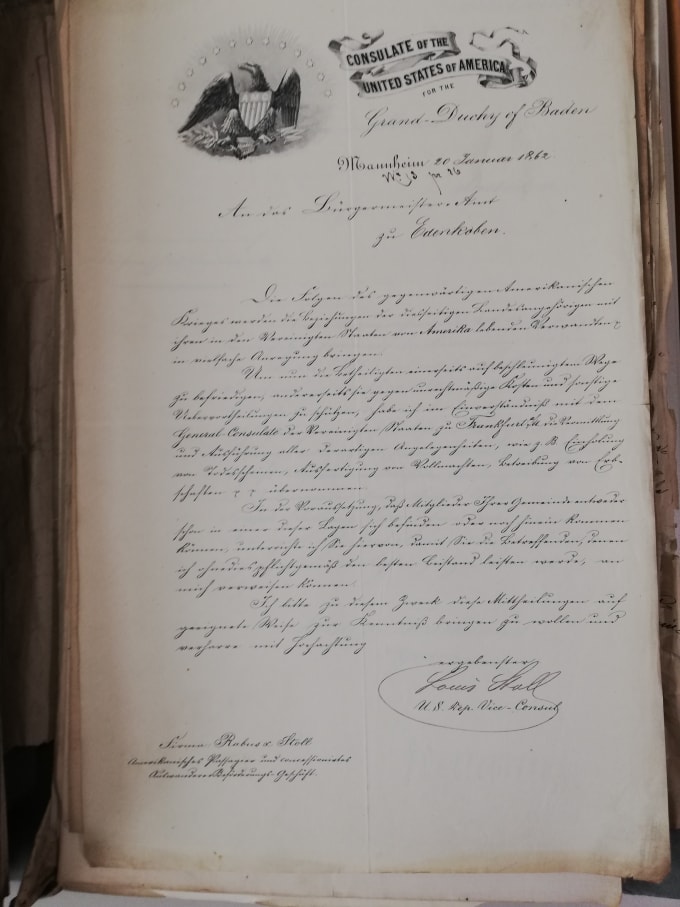 CONSULATE OF THE
UNITED STATES OF AMERICA
FOR THE
Grand-Duchy of Baden
Mannheim 20 Januar 1862.
An das Bürgermeister-Amt
zu Edenkoben.
Die Folgen des gegenwärtigen Amerikanischen
Krieges werden die Beziehungen der diesseitigen Landesangehörigen mit
ihren in den Vereinigten Staaten von Amerika lebenden Verwandten
in vielfache Anregung bringen.
Um nun die Betheiligten einerseits auf beschleunigtem Wege
zu befriedigen, andererseits sie gegen unrechtmäßige Kosten und sonstige
Uebervortheilungen zu schützen, habe ich im Einverständniß mit dem
General-Consulate der Vereinigten Staaten zu Frankfurt die Vermittlung
und Ausführung aller derartigen Angelegenheiten, wie z. B. Einholung
von Todesscheinen, Ausfertigung von Vollmachten, Betreibung von Erb-
schaften übernommen.
In der Voraussetzung, daß Mitglieder Ihrer Gemeinde entweder
schon in einer dieser Lagen sich befinden oder noch hinein kommen
können, unterrichte ich Sie hiervon, damit Sie die Betreffenden, denen
ich ohnedies pflichtgemäß den besten Beistand leisten werde, an
mich verweisen können.
Ich bitte zu diesem Zweck diese Mittheilungen auf
geeignete Weise zur Kenntniß bringen zu wollen und
verharre mit Hochachtung
ergebenster
Louis Stoll
U. S. Dep. Vice-Consul
Firma: Rabus & Stoll
Amerikanisches Passagier und concessionirtes
Auswanderer Beförderungs-Geschäft.